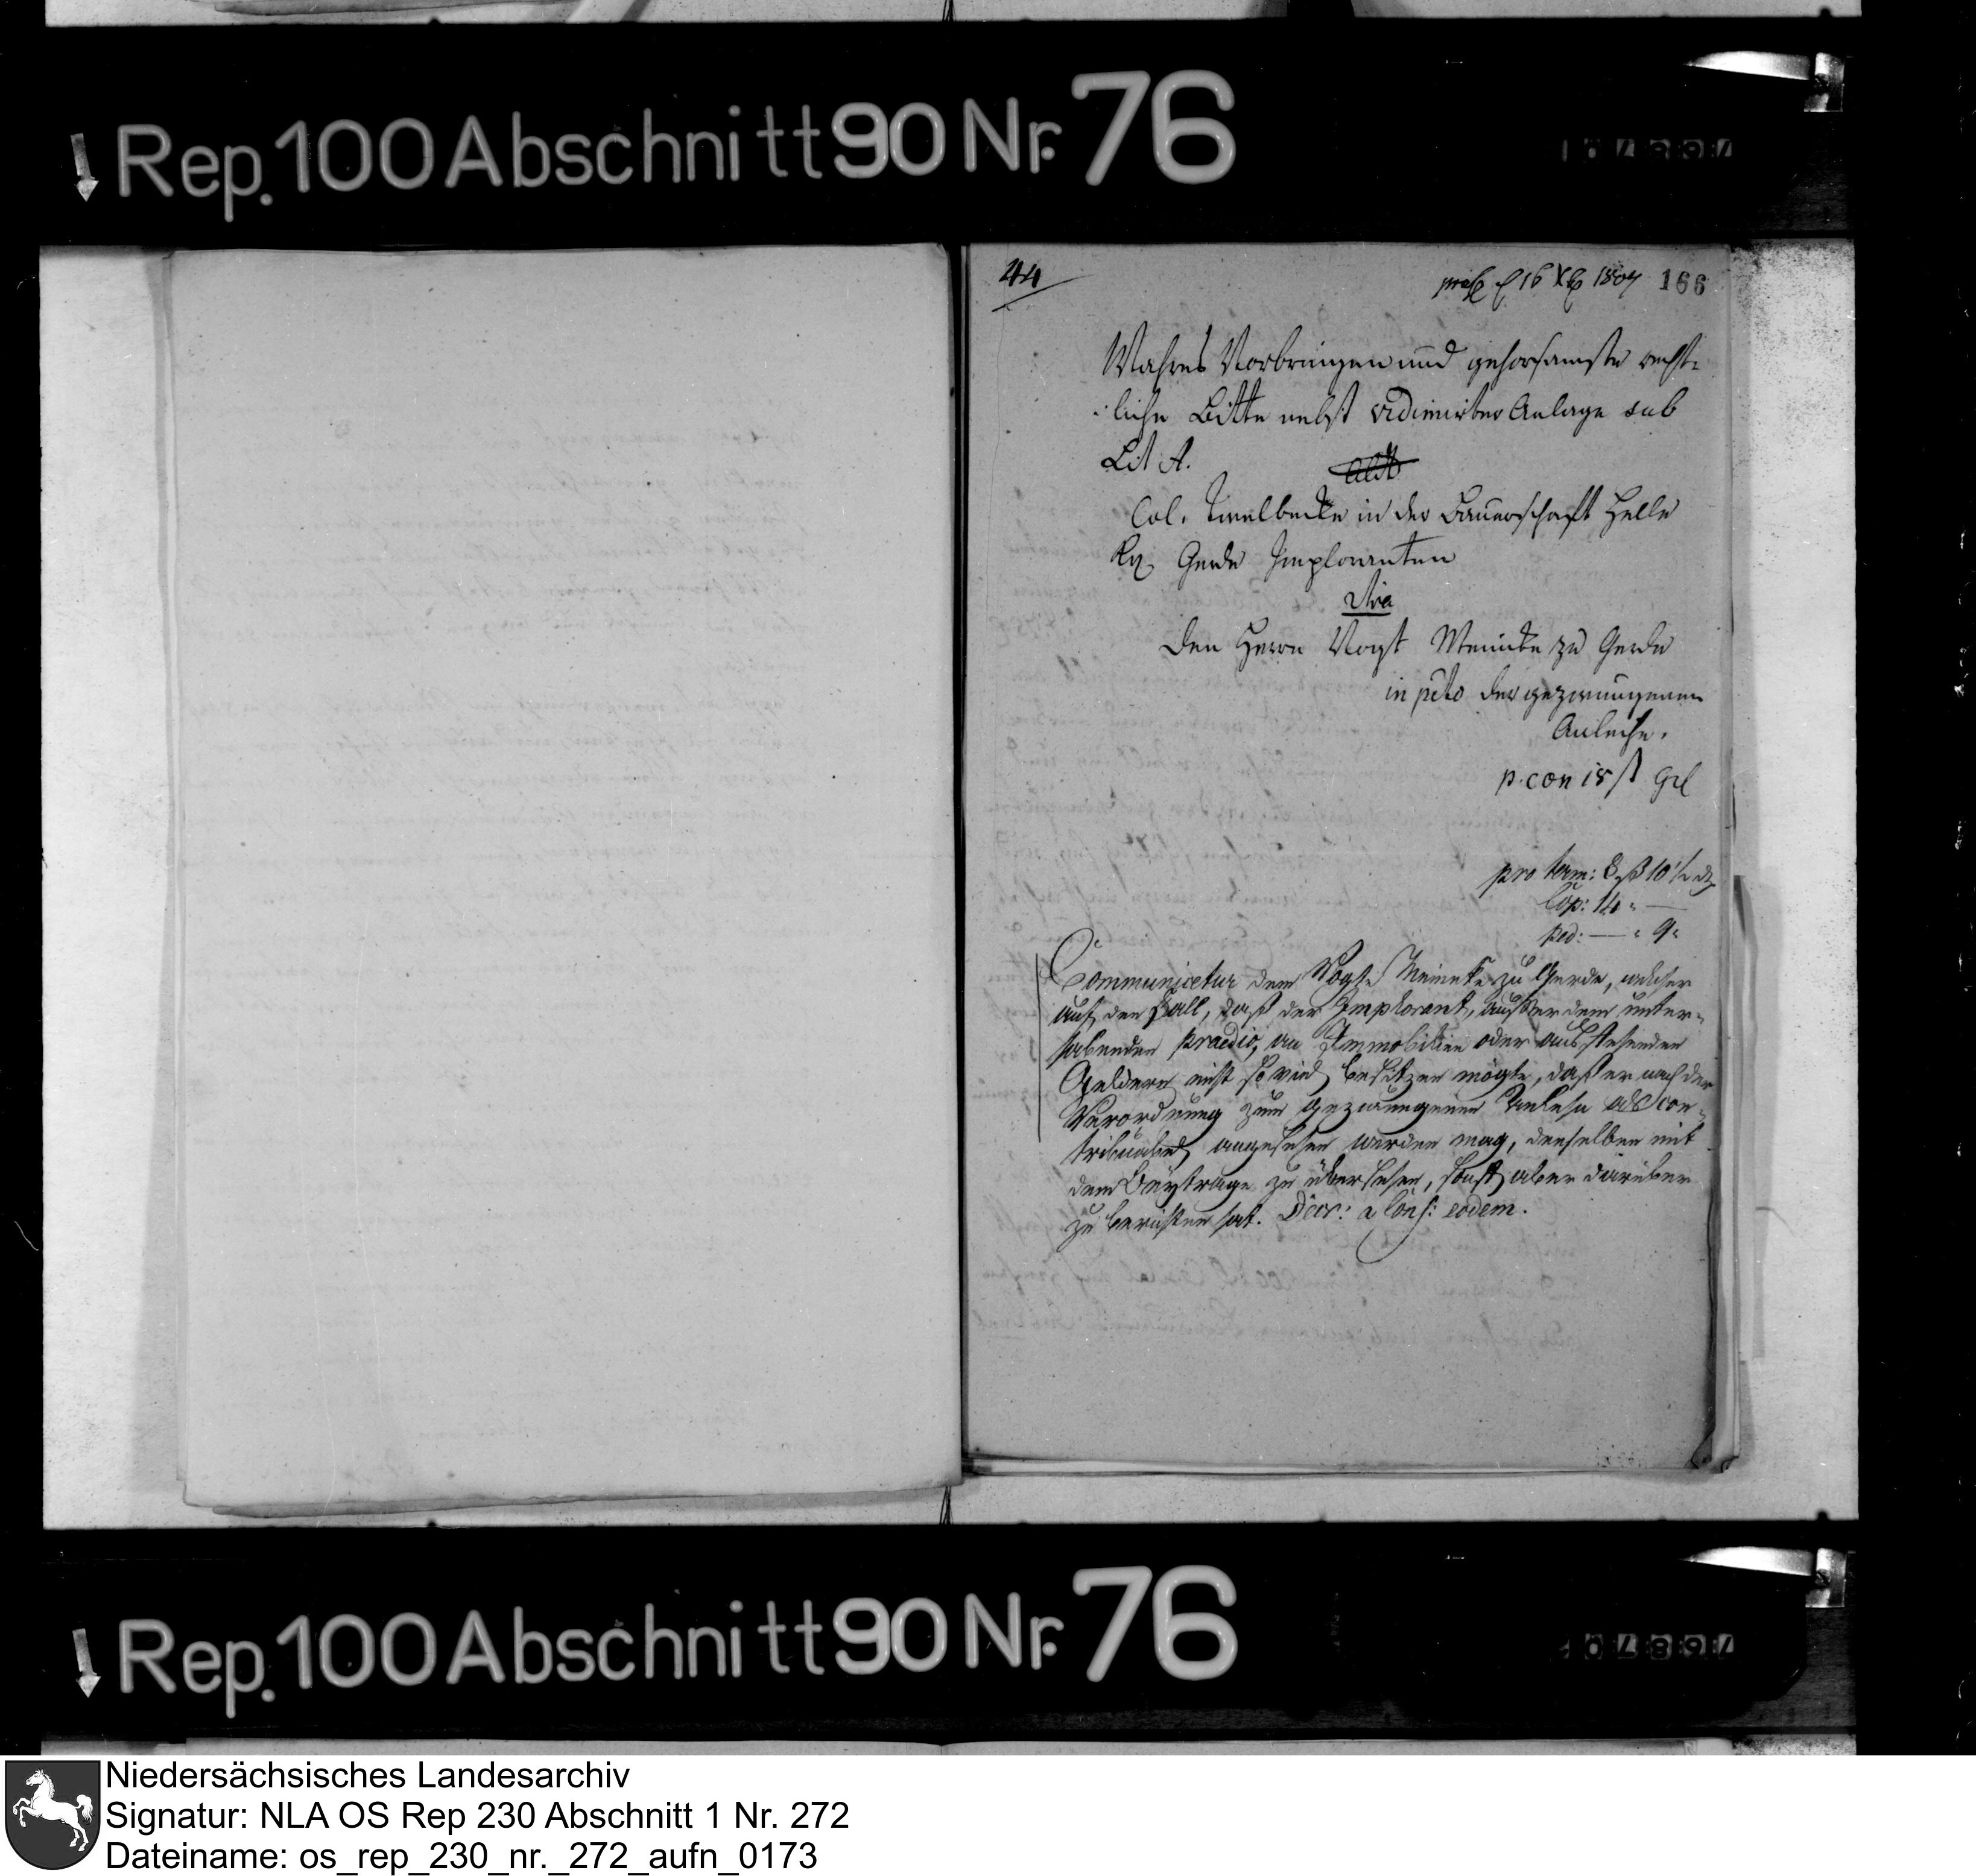 Rep. 100 Abschnitt 90 Nr. 76
44
166
Wahres Vorbringen und gehorsamste recht-
liche Bitte nebst vidimirter Anlage sub
Lit A.
Col. Twelbecke in der Bauerschaft Helle
Gerde Imploranten
Ctra
den Herrn Vogt Meineke zu Gerde
in pcto der gezwungenen
Anleihe.
pro term: 8 ß 10 1/2
Cop: 14 " —
ped: — " 9 "
Communicetur dem Vogte Meineke zu Gerde, welcher
auf den Fall, daß der Implorant, außer dem unter-
habenden praedio, an Immobilien oder ausstehenden
Geldern nicht so viel besitzen mögte, daß er nach der
Verordnung zum gezwungenen Anlehn als con-
tribuabel angesehen werden mag, denselben mit
dem Beytrage zu übersehen, sonst aber darüber
zu berichten hat. Decr: a Cons: eodem.
Rep. 100 Abschnitt 90 Nr. 76
Niedersächsisches Landesarchiv
Signatur: NLA OS Rep 230 Abschnitt 1 Nr. 272
Dateiname: os_rep_230_nr._272_aufn_0173